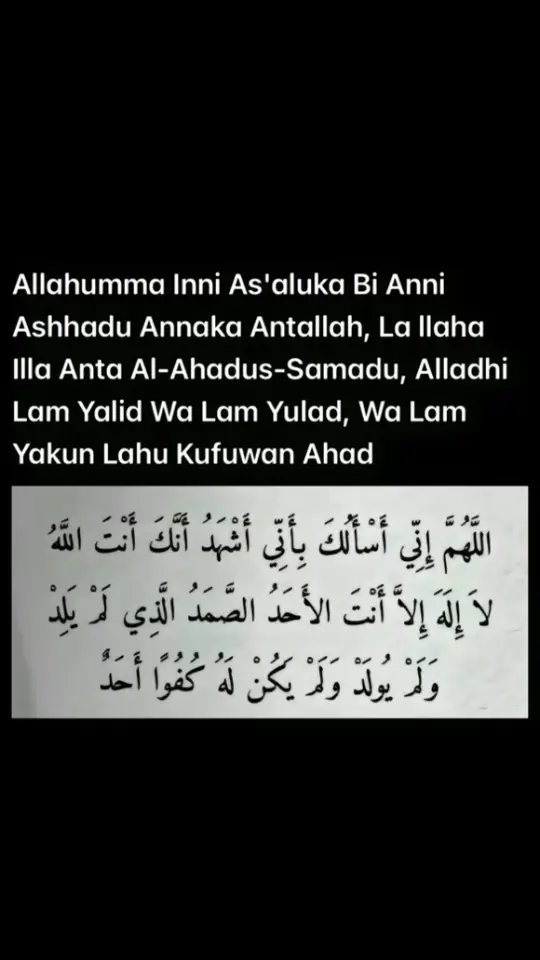 Allahumma Inni As'aluka Bi Anni
Ashhadu Annaka Antallah, La llaha
Illa Anta Al-Ahadus-Samadu, Alladhi
Lam Yalid Wa Lam Yulad, Wa Lam
Yakun Lahu Kufuwan Ahad
اللَّهُمَّ إِنِّي أَسْأَلُكَ بِأَنِّي أَشْهَدُ أَنَّكَ أَنْتَ اللَّهُ
لاَ إِلَهَ إِلاَّ أَنْتَ الأَحَدُ الصَّمَدُ الَّذِي لَمْ يَلِدْ
وَلَمْ يُولَدْ وَلَمْ يَكُنْ لَهُ كُفُوًا أَحَدٌ